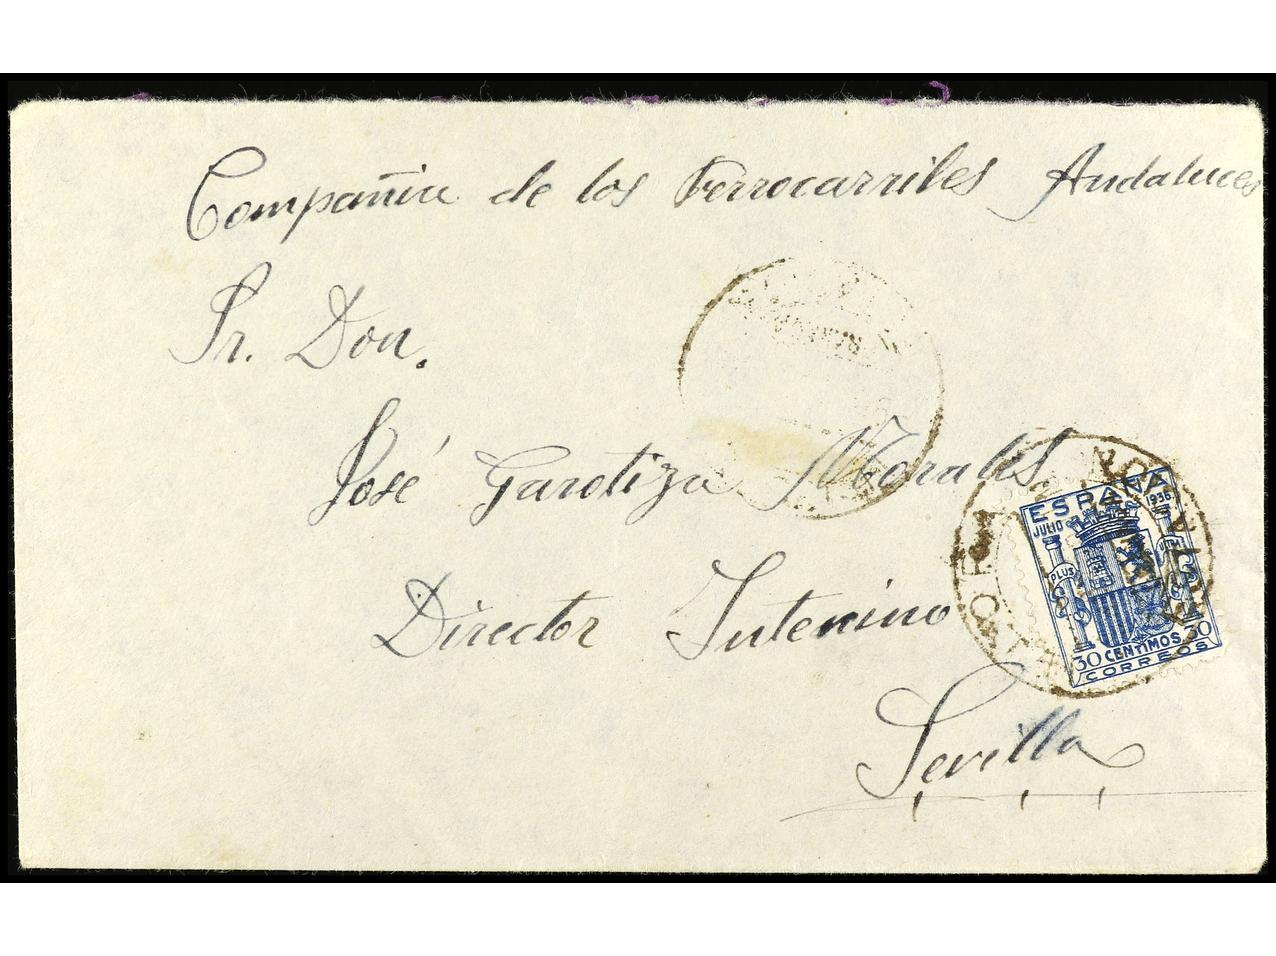 Compañia de los Ferrocarriles Andaluces
Sr. Don.
José Garotiza Morales
Director Intenino
Sevilla
ESPAÑA
JULIO 1936
PLUS
30 CENTIMOS 30
CORREOS